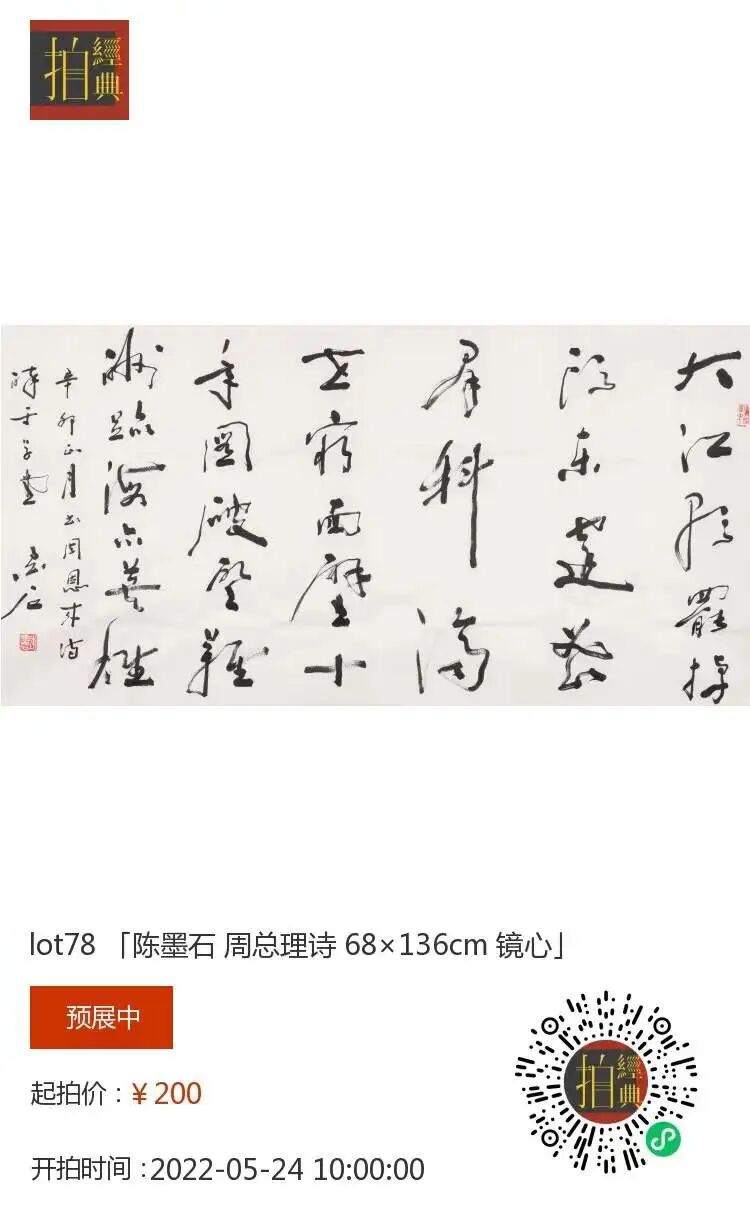 經典
拍
大江歌罷掉
頭東邃密
群科濟
世窮面壁十
年圖破壁難
酬蹈海亦英雄
辛卯正月书周恩来诗
墨石
lot78 「陈墨石 周总理诗 68×136cm 镜心」
预展中
起拍价：¥ 200
开拍时间：2022-05-24 10:00:00
經典
拍